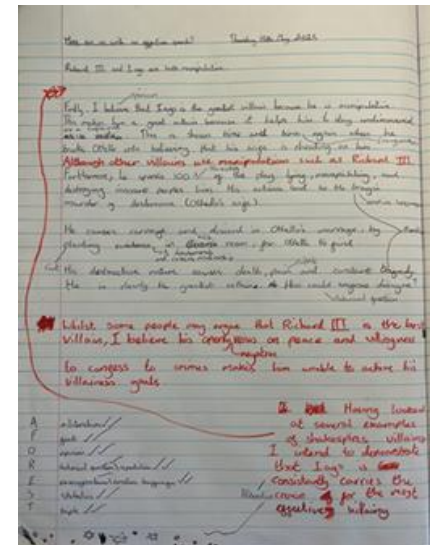 How do we write an effective speech? Thursday 15th May 2025
Richard III and Iago are both manipulative
Firstly, I believe that Iago is the greatest villain because he is manipulative.
This makes him a good villain because it helps him to stay undiscovered
This is shown time and time again when he
tricks Othello into believing that his wife is cheating on him
Although other villains use manipulations such as Richard III
Furthermore, he spends 100% of the day lying, manipulating, and
destroying innocent peoples lives. His actions lead to the tragic
murder of desdemona (Othello's wife)
He causes carnage and discord in Othello's marriage, by
planting evidence, in room, for Othello to find
His destructive nature causes death, pain and constant tragedy
He is clearly the greatest villain. How could anyone disagree?
rhetorical question
Whilst some people may argue that Richard III is the best
villain, I believe his on peace and
neglect
to confess to crimes makes him unable to achieve his
villainess goals
Having looked
at several examples
of shakespeares villains
I intend to demonstrate
that Iago is
consistantly carries the
crown for the most
effective villainy
A alliteration
F fact
O opinion
R rhetorical question/repetition
E exaggeration/emotive language
S statistics
T triple